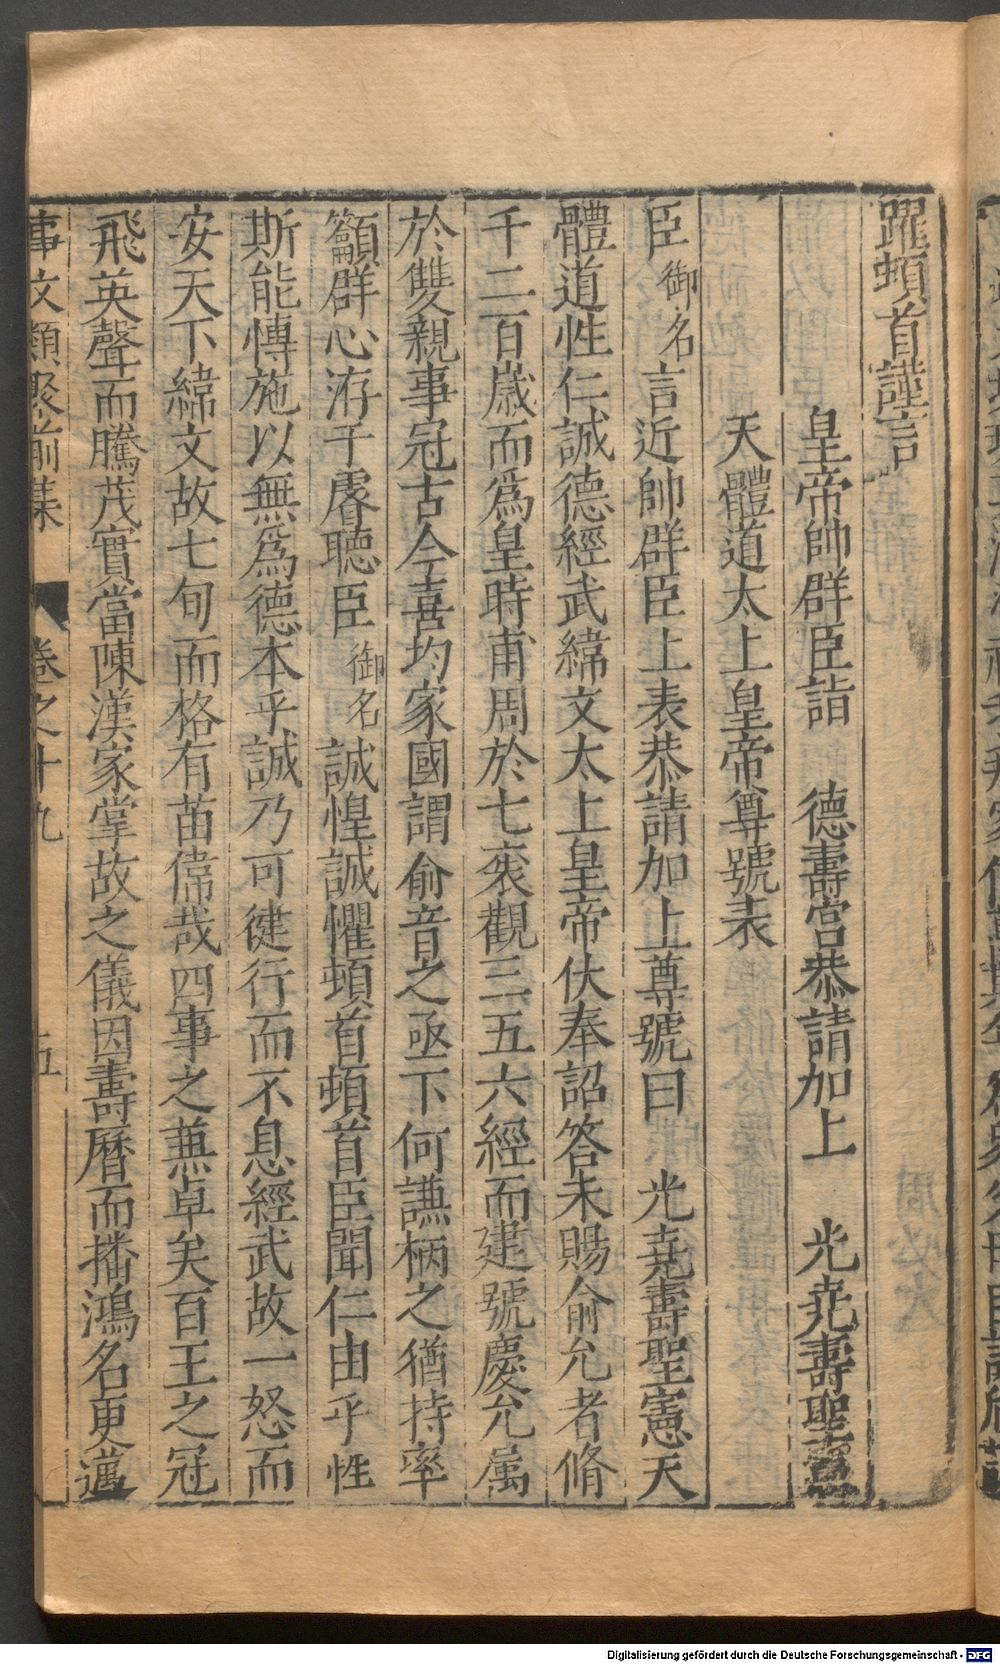 躍頓首謹言
皇帝帥群臣詣　德壽宫恭請加上　光堯壽聖憲
天體道太上皇帝尊號表
臣御名言近帥群臣上表恭請加上尊號曰　光堯壽聖憲天
體道性仁誠德經武緯文太上皇帝伏奉詔答未賜俞允者脩
千二百歲而爲皇時甫周於七衮觀三五六經而建號慶允属
於雙親事冠古今喜均家國謂俞音之亟下何謙柄之猶持率
籲群心洊干睿聽臣御名誠惶誠懼頓首頓首臣聞仁由乎性
斯能愽施以無爲德本乎誠乃可健行而不息經武故一怒而
安天下緯文故七旬而格有苗偉哉四事之兼卓矣百王之冠
飛英聲而騰茂實當陳漢家掌故之儀因壽曆而播鴻名更邁
事文類聚前集　卷之十九　五
Digitalisierung gefördert durch die Deutsche Forschungsgemeinschaft - DFG